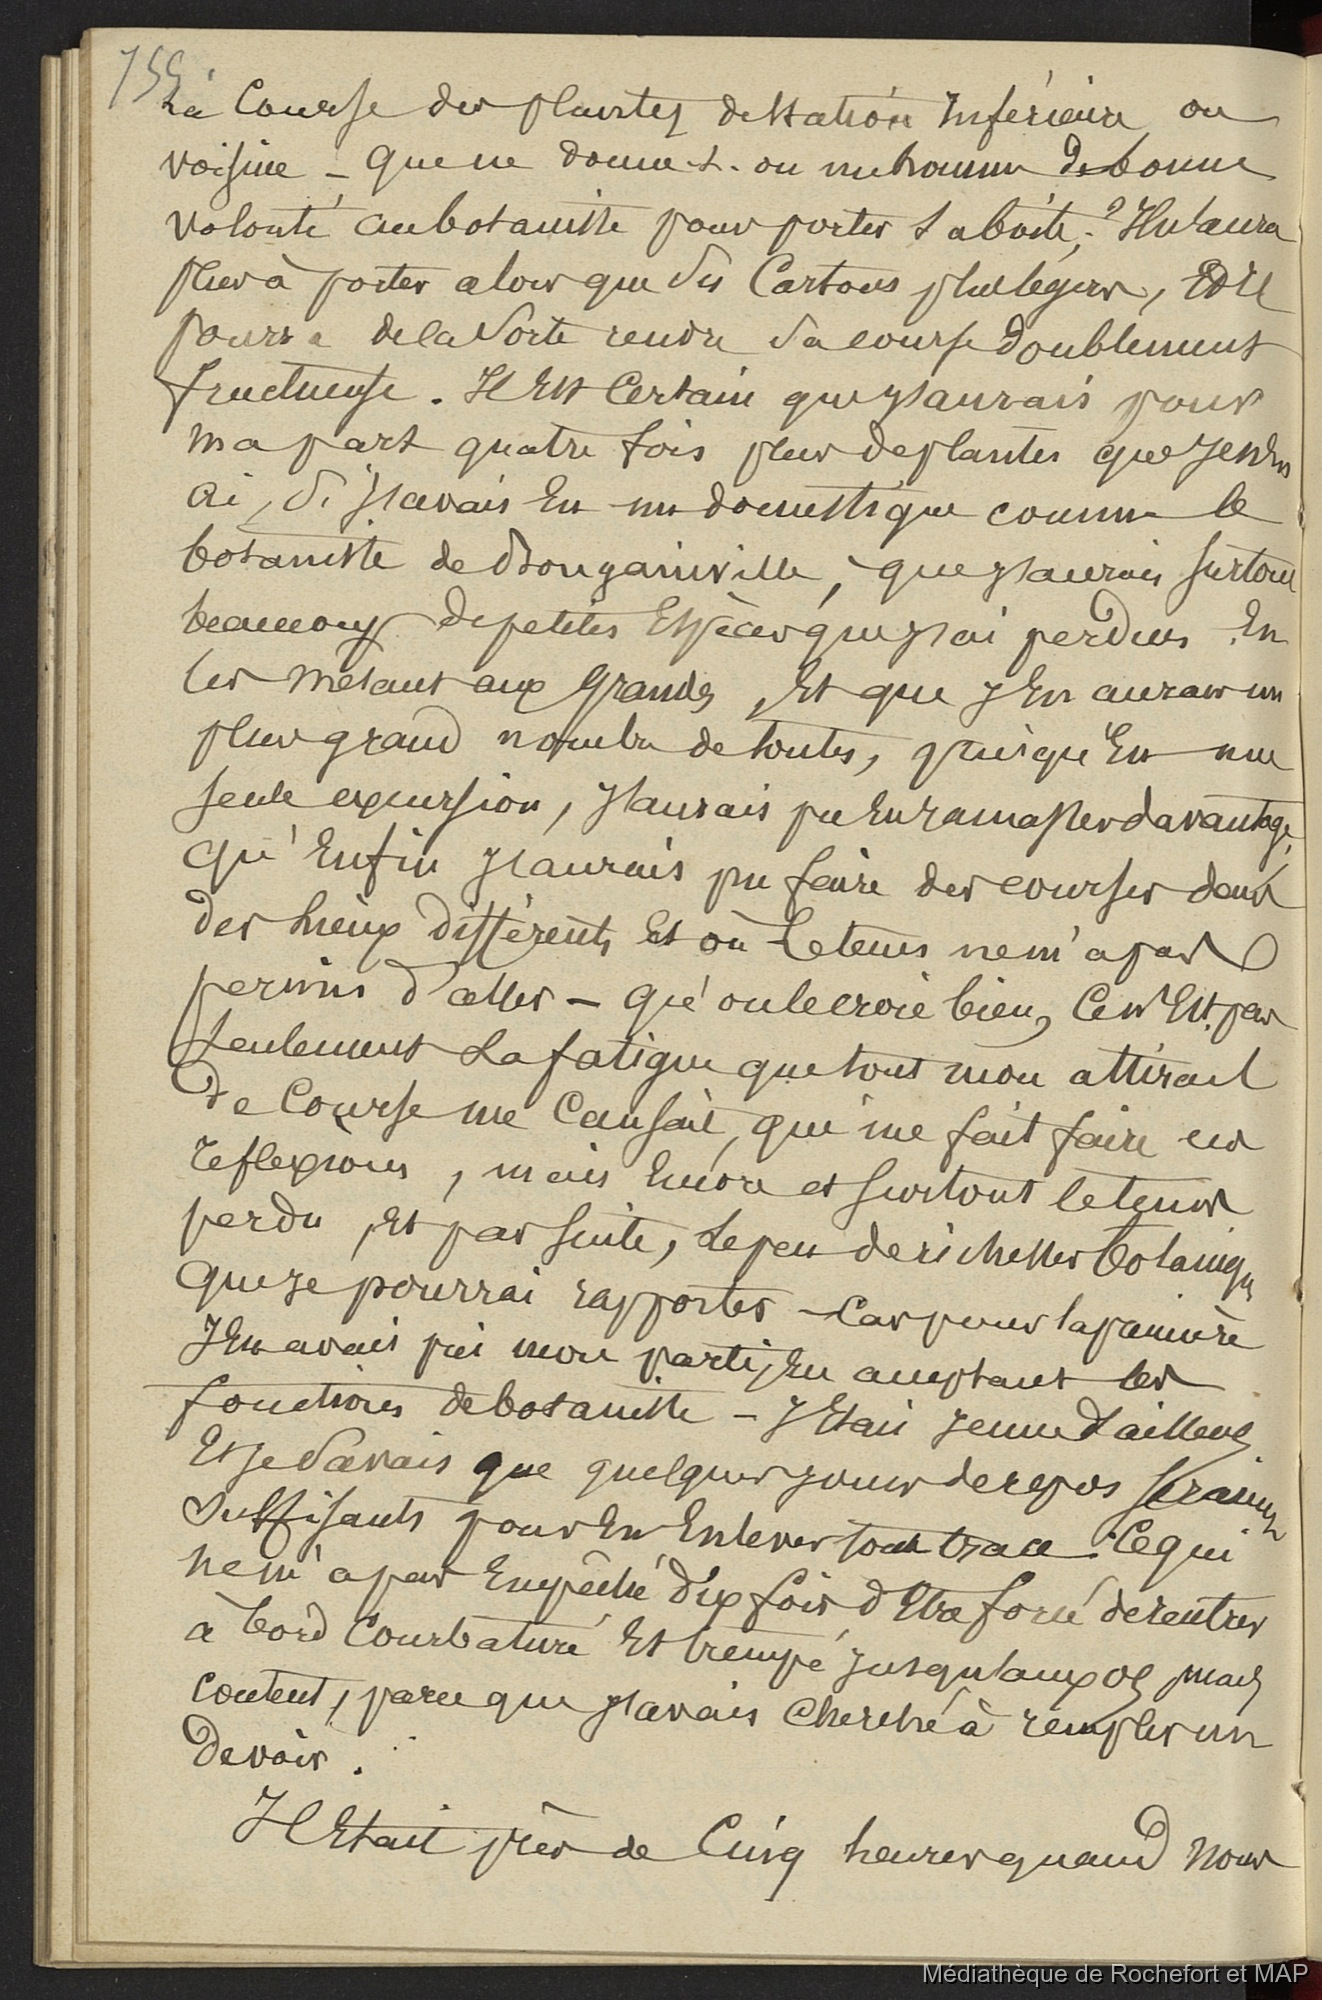 755
La Course des plantes de Station Inférieure ou
voisine – que ne donne-t-on un homme de bonne
volonté au botaniste pour porter sa boîte; ? Il n'aura
plus à porter alors que ses Cartons plus légers, Et Il
pourra de la Sorte rendre sa course Doublement
fructueuse. Il Est Certain que J'aurais pour
ma part quatre fois plus de plantes que Je n'En
ai, Si J'avais Eu un domestique comme le
botaniste de Bougainville, que J'aurais surtout
beaucoup de petites Espèces que J'ai perdues En
les mêlant aux Grandes, Et que J'En aurais un
plus grand nombre de toutes, puisqu'En une
seule excursion, J'aurais pu En ramasser davantage,
qu'Enfin J'aurais pu faire des courses dans
des lieux Différents Et où le tems ne m'a pas
permis d'aller – qu'on le croie bien, Ce n'Est pas
seulement La fatigue que tout mon attirail
de Course me Causait, qui me fait faire ces
réflexions, mais Encore et surtout le tems
perdu, Et par suite, Le peu de richesses botaniques
que Je pourrai rapporter – Car pour la première
J'En avais pris mon parti, En acceptant les
fonctions de botaniste – J'Etais Jeune d'ailleurs
Et Je Savais que quelques Jours de repos seraient
Suffisants pour En Enlever toute trace. Ce qui
ne m'a pas Empêché dix fois d'Etre forcé de rentrer
à bord Courbaturé Et trempé Jusqu'aux os mais
content, parce que J'avais Cherché à remplir un
Devoir.
Il Etait près de Cinq heures quand Nous
Médiathèque de Rochefort et MAP